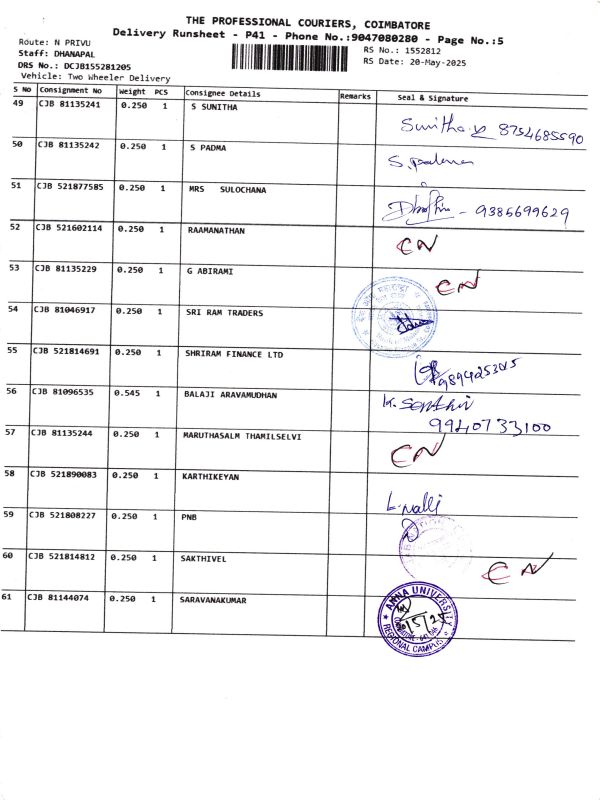 THE PROFESSIONAL COURIERS, COIMBATORE
Delivery Runsheet - P41 - Phone No.:9047080280 - Page No.:5
Route: N PRIVU
RS No.: 1552812
Staff: DHANAPAL
RS Date: 20-May-2025
DRS No.: DCJB155281205
Vehicle: Two Wheeler Delivery
S No Consignment No Weight PCS Consignee Details Remarks Seal & Signature
49 CJB 81135241 0.250 1 S SUNITHA Sunitha 8754685590
50 CJB 81135242 0.250 1 S PADMA S. padma
51 CJB 521877585 0.250 1 MRS SULOCHANA - 9385699629
52 CJB 521602114 0.250 1 RAAMANATHAN CN
53 CJB 81135229 0.250 1 G ABIRAMI CN
54 CJB 81046917 0.250 1 SRI RAM TRADERS
55 CJB 521814691 0.250 1 SHRIRAM FINANCE LTD 9894253015
56 CJB 81096535 0.545 1 BALAJI ARAVAMUDHAN K. Senthil
9940733100
57 CJB 81135244 0.250 1 MARUTHASALM THAMILSELVI CN
58 CJB 521890083 0.250 1 KARTHIKEYAN L. Nalli
59 CJB 521808227 0.250 1 PNB
60 CJB 521814812 0.250 1 SAKTHIVEL CN
61 CJB 81144074 0.250 1 SARAVANAKUMAR ANNA UNIVERSITY
REGIONAL CAMPUS